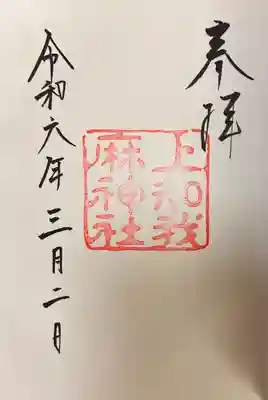 奉拝
上知我
麻神社
令和六年三月二日